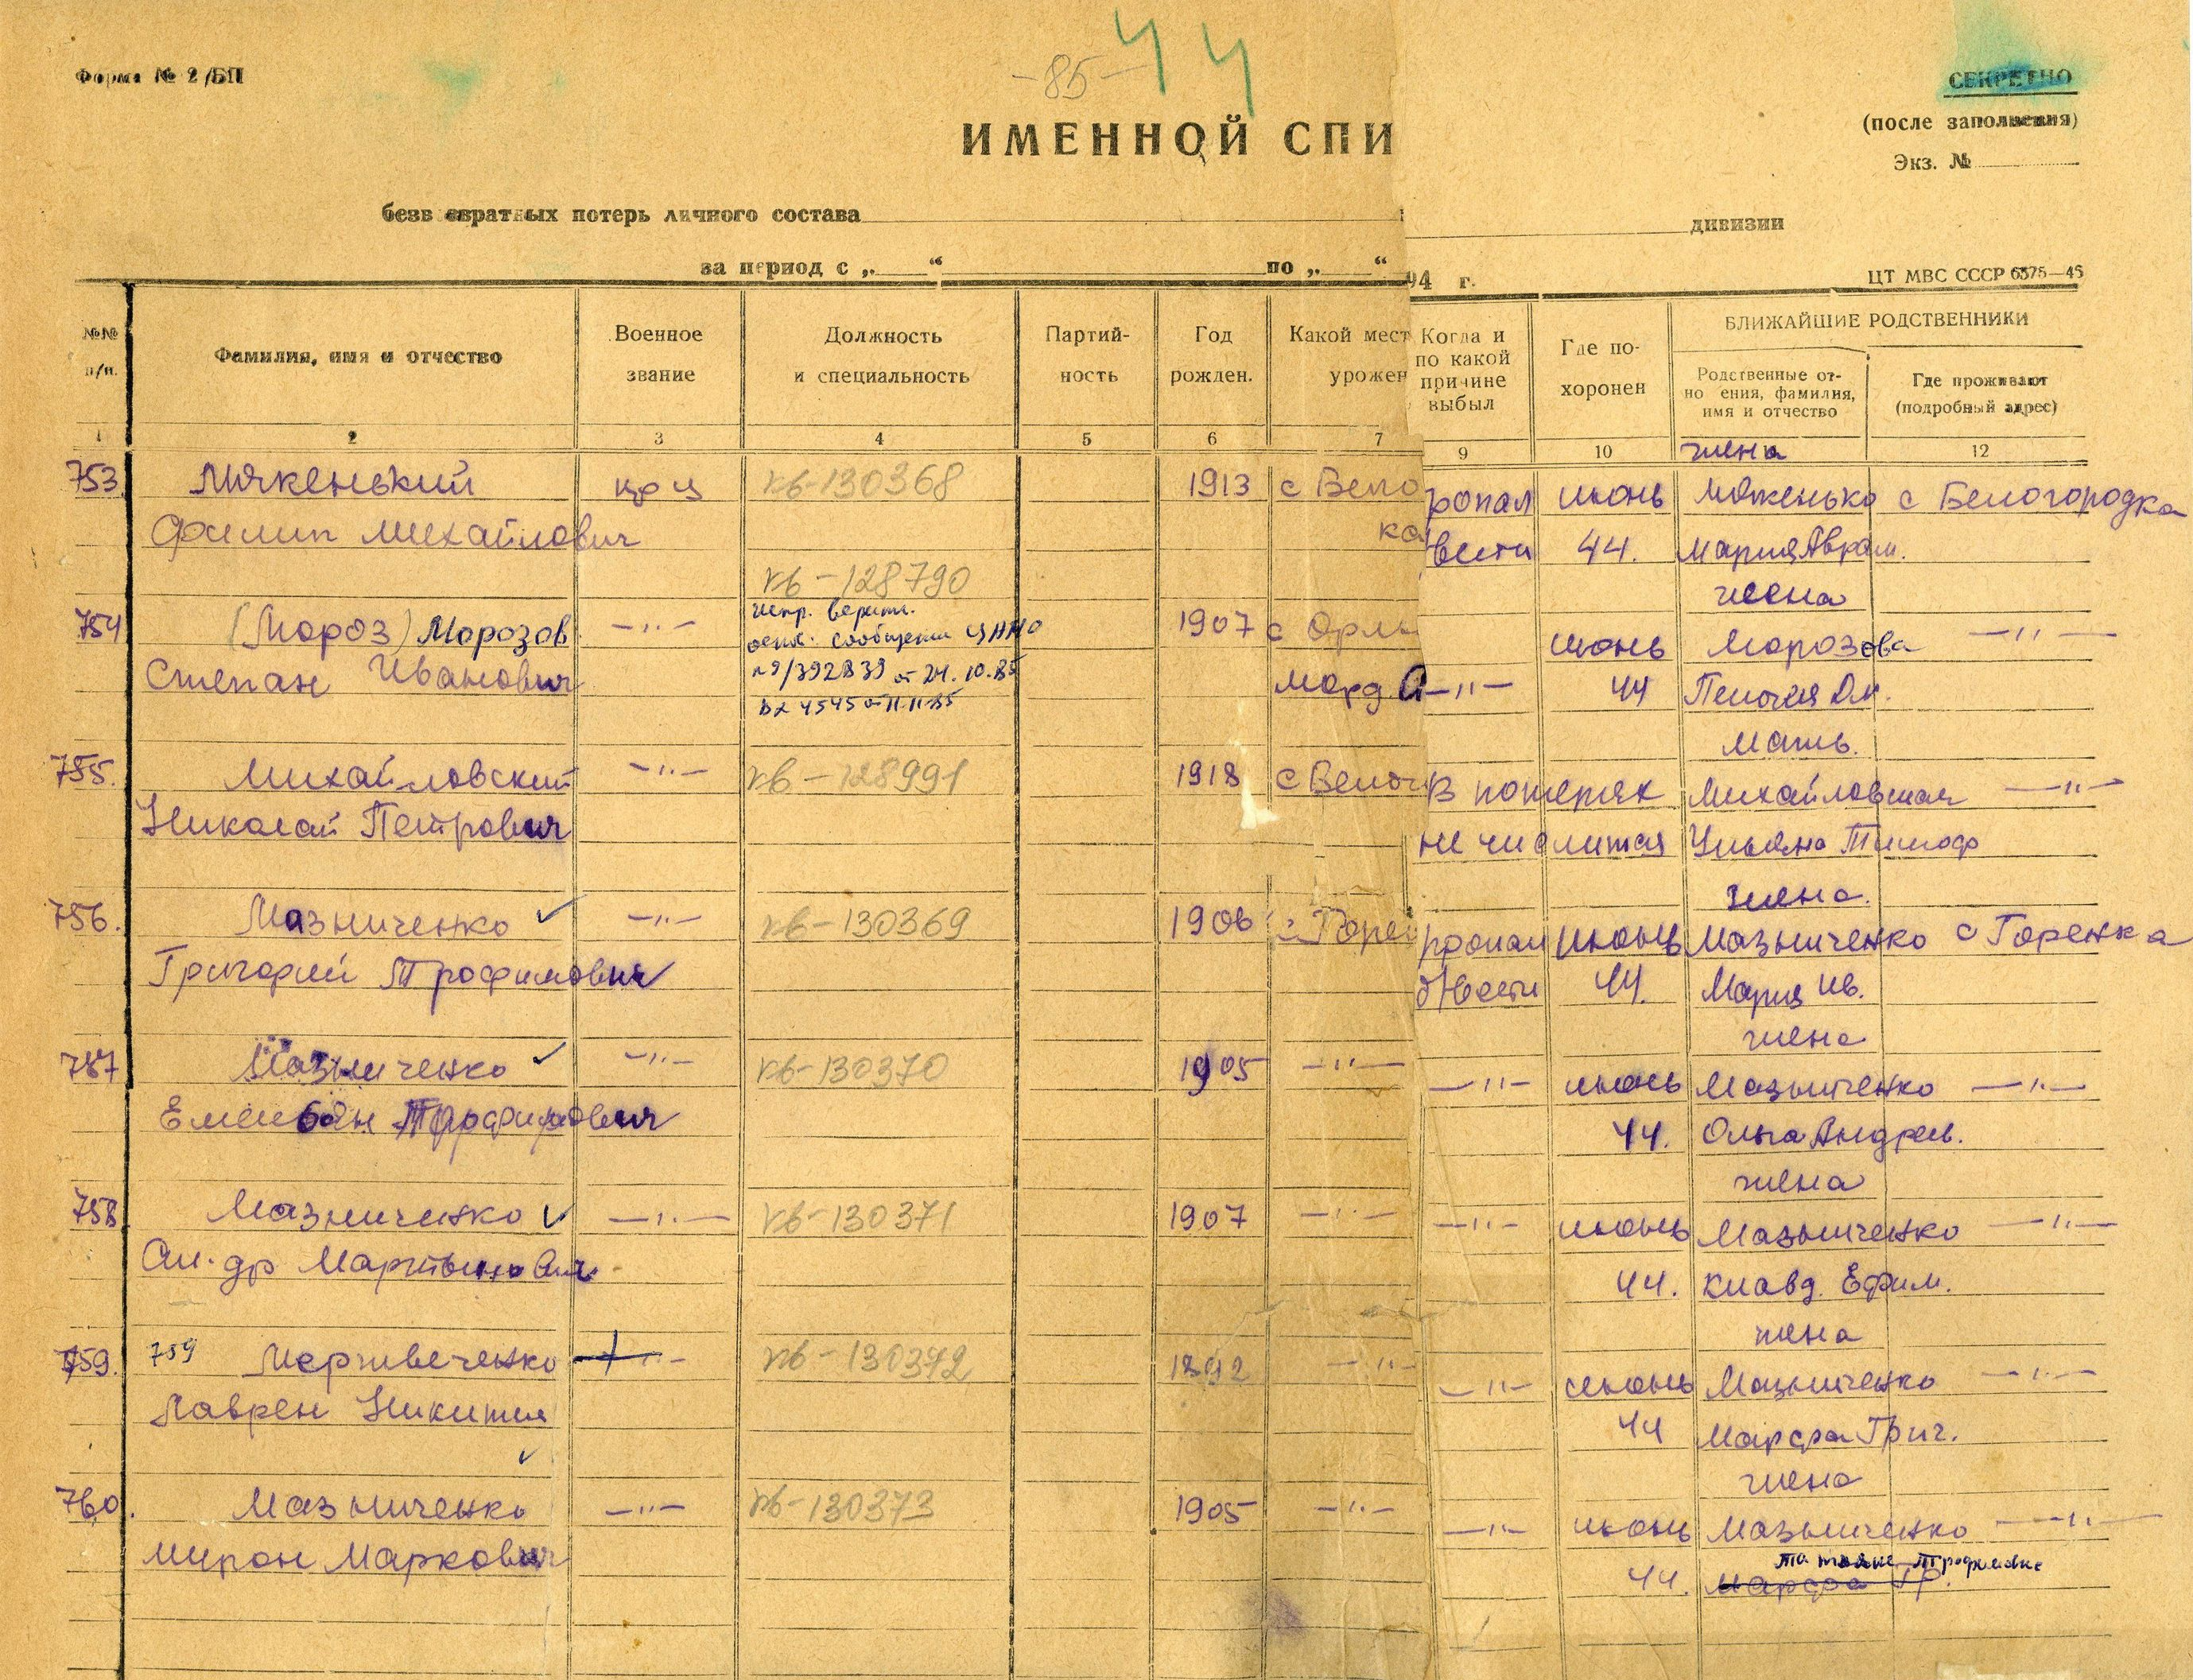 Форма № 2/БП
-85-
44
СЕКРЕТНО
(после заполнения)
Экз. №
ИМЕННОЙ СПИ
безвозвратных потерь личного состава
дивизии
за период с „ “ по „ “
94 г.
ЦТ МВС СССР 6375—46
№№ п/п.
Фамилия, имя и отчество
Военное звание
Должность и специальность
Партий-
ность
Год рожден.
Какой мест
урожен
Когда и по какой причине выбыл
Где по-
хоронен
БЛИЖАЙШИЕ РОДСТВЕННИКИ
Родственные от-
но ения, фамилия,
имя и отчество
Где проживают
(подробный адрес)
1 2 3 4 5 6 7 9 10 12
жена
753 Мякенький кр-ц кв-130368 1913 с Бело ропал июнь с Белогородка
Филип Михайлович ка вести 44. Мария Аврам.
кв-128790 жена
754 (Мороз) Морозов —"— 1907 с Орлы июнь Морозова —"—
сообщения ЦАМО
Степан Иванович №9/392839 от 24.10.85 морд. —"— 44
Вх 4545 от 11.11.85
мать.
755. Михайловский —"— кв-128991 1918 с Белог В потерях Михайловская —"—
Николай Петрович не числится Ульяна Тимоф
жена.
756. Мазниченко —"— кв-130369 1906 с Горен ропал июнь Мазниченко с Горенка
Григорий Трофимович вести 44. Мария Ив.
жена
757 Мазниченко —"— кв-130370 1905 —"— —"— июнь Мазниченко —"—
Емельян Трофимович 44. Ольга Андреев.
жена
758 Мазниченко —"— кв-130371 1907 —"— —"— июнь Мазниченко —"—
Ал-др Мартынович 44. Клавд. Ефим.
жена
759. 759 Мертвеченко —"— кв-130372 1892 —"— —"— июнь Мазниченко —"—
Лаврен Никитич 44 Марфа Григ.
жена
760. Мазниченко —"— кв-130373 1905 —"— —"— июнь Мазниченко —"—
Татьяна Трофимовна
Мирон Маркович 44. Марфа Гр.